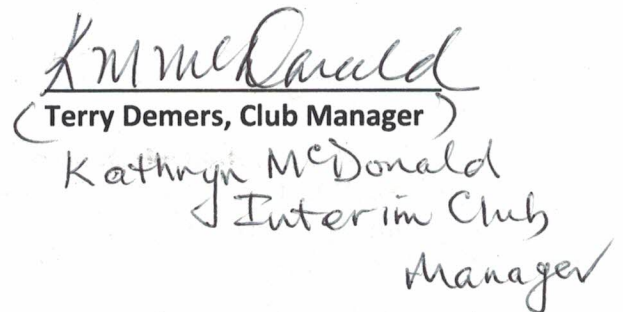 KMMcDonald
(Terry Demers, Club Manager)
Kathryn McDonald
Interim Club
Manager